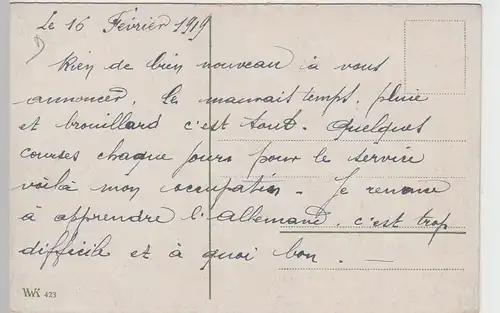 Le 16 Février 1919
Rien de bien nouveau à vous
annoncer. Le mauvais temps, pluie
et brouillard c'est tout. Quelques
courses chaque jours pour le service
voilà mon occupation - Je renonce
à apprendre l'allemand, c'est trop
difficile et à quoi bon. —
WK 423